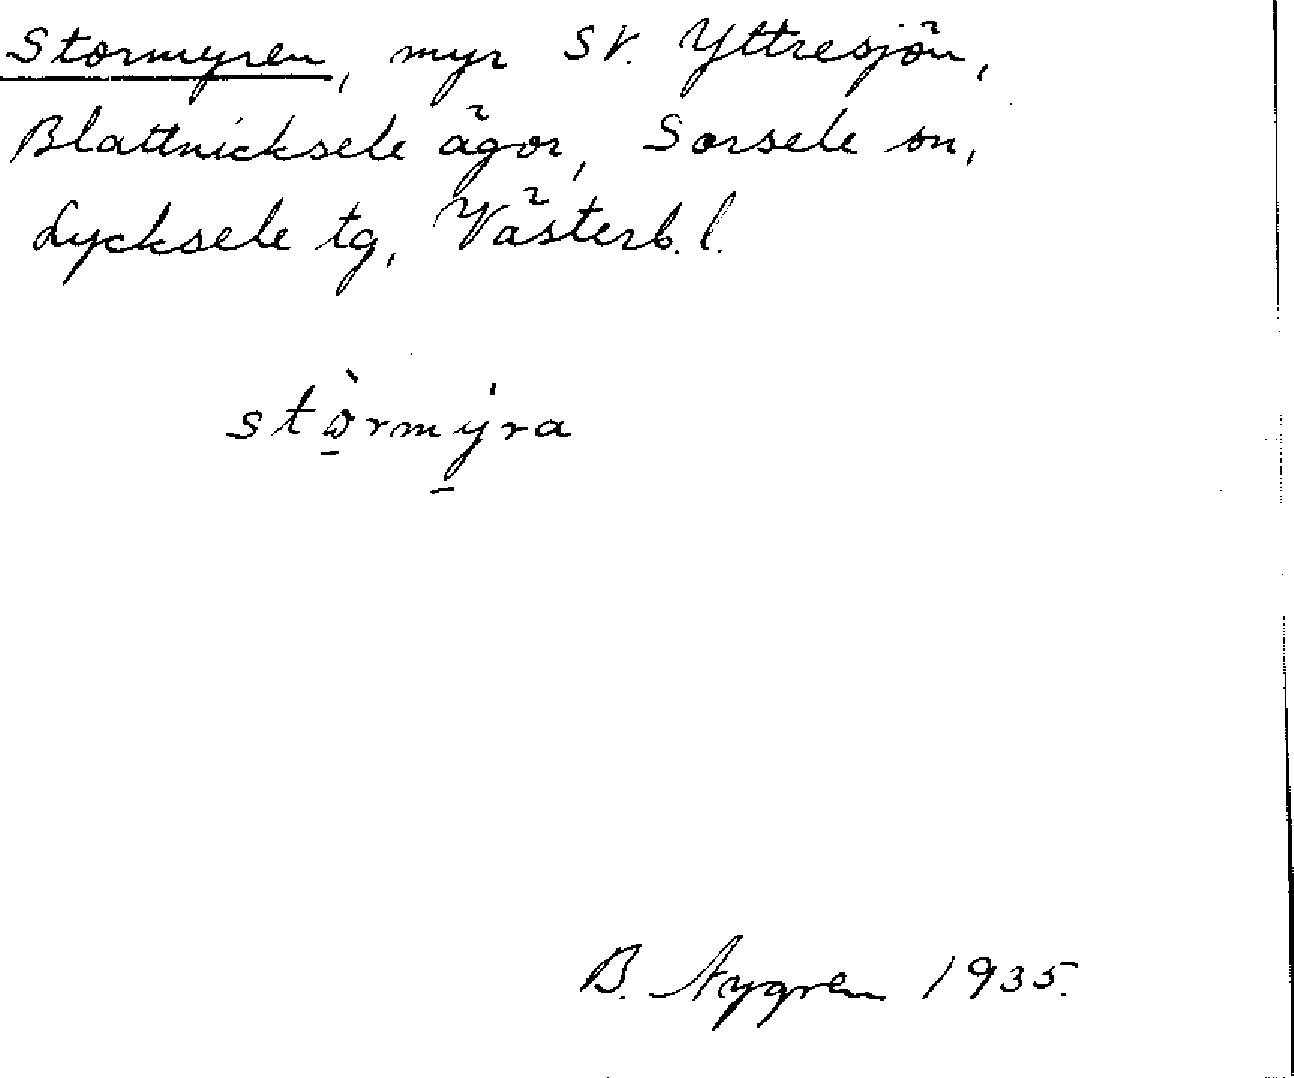 Stormyren, myr SV. Yttresjön,
Blattnicksele ägor, Sorsele sn,
Lycksele tg, Västerb. l.
stò̱rmý̱ra
B. Nygren 1935.